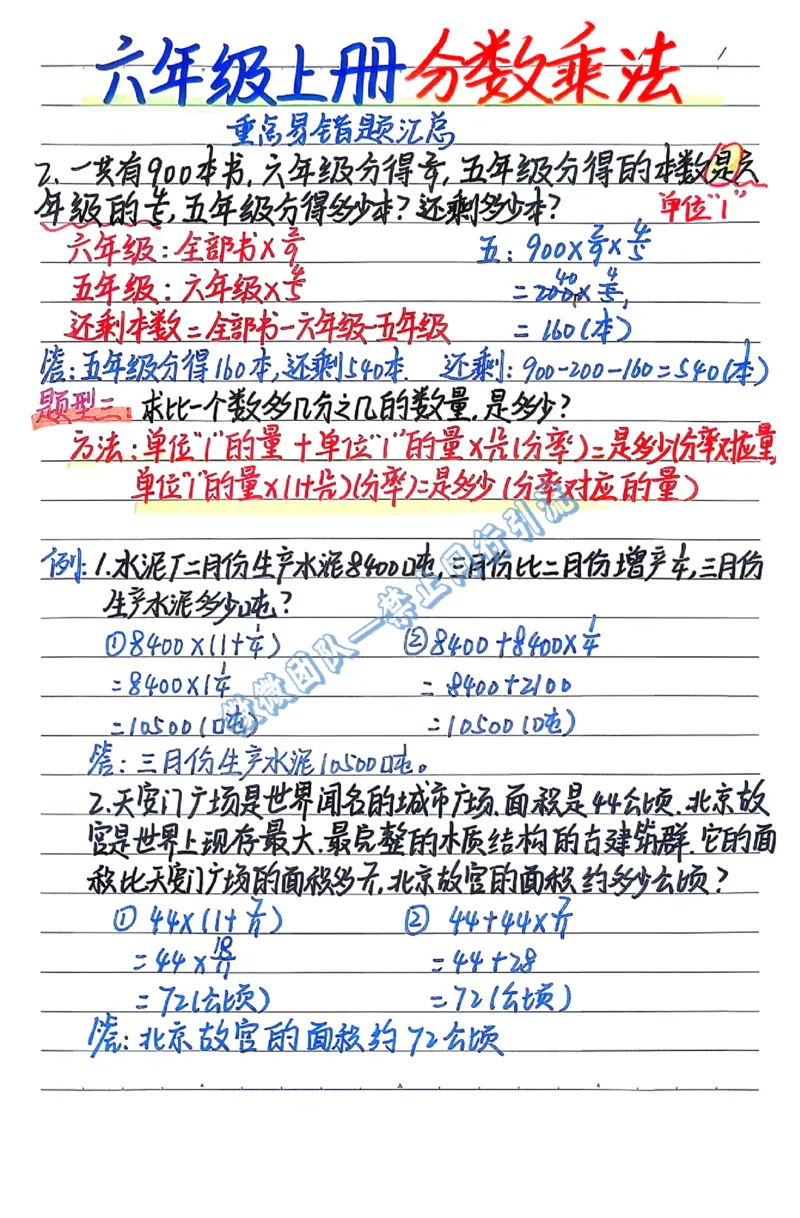 六年级上册 分数乘法
重点易错题汇总
2、一共有900本书,六年级分得2/9,五年级分得的本数是六
年级的4/5,五年级分得多少本?还剩多少本? 单位"1"
六年级:全部书×2/9 五:900×2/9×4/5
五年级:六年级×4/5 =200×4/5 40
还剩本数=全部书-六年级-五年级 =160(本)
答:五年级分得160本,还剩540本. 还剩:900-200-160=540(本)
题型二:求比一个数多几分之几的数量,是多少?
方法:单位"1"的量+单位"1"的量×几/几(分率)=是多少(分率对应量)
单位"1"的量×(1+几/几)(分率)=是多少(分率对应的量)
例:1.水泥厂二月份生产水泥8400吨,三月份比二月份增产1/4,三月份
生产水泥多少吨?
①8400×(1+1/4) ②8400+8400×1/4
=8400×1 1/4 =8400+2100
=10500(吨) =10500(吨)
答:三月份生产水泥10500吨。
2.天安门广场是世界闻名的城市广场.面积是44公顷.北京故
宫是世界上现存最大.最完整的木质结构的古建筑群.它的面
积比天安门广场的面积多7/11,北京故宫的面积约多少公顷?
① 44×(1+7/11) ② 44+44×7/11
=44×18/11 =44+28
=72(公顷) =72(公顷)
答:北京故宫的面积约72公顷
微微团队—禁止同行引流